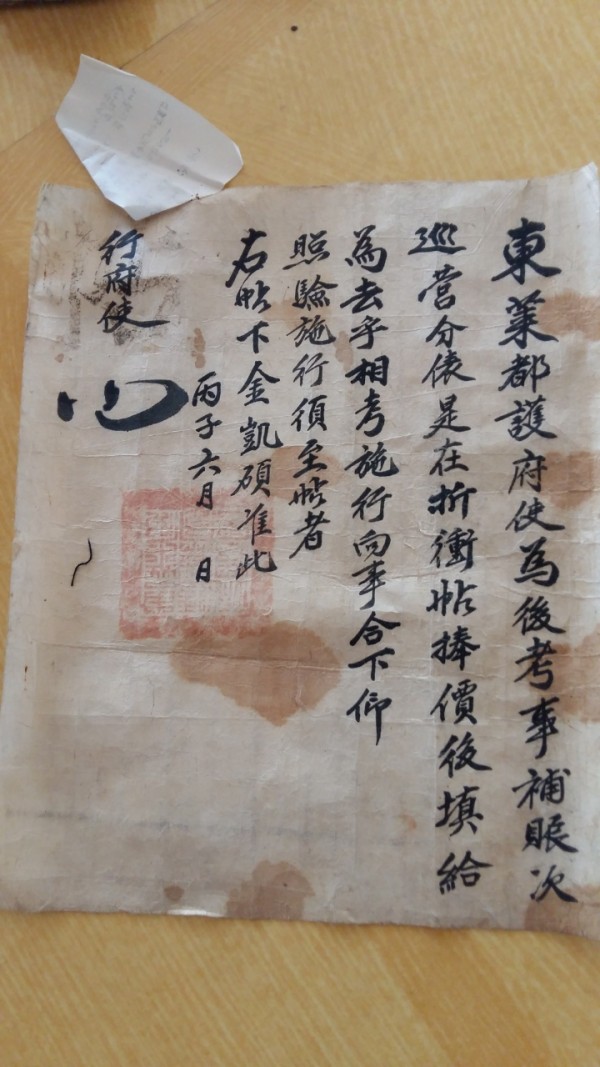 東萊都護府使為後考事補賑次
巡營分俵是在折衝帖捧價後填給
為去乎相考施行向事合下仰
照驗施行須至帖者
右帖下金凱碩准此
丙子六月 日
行府使